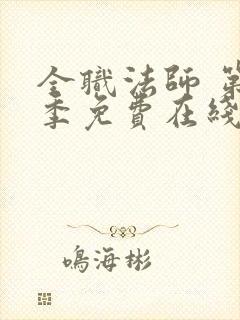 全職法師 第
季免費在綫
鳴海彬